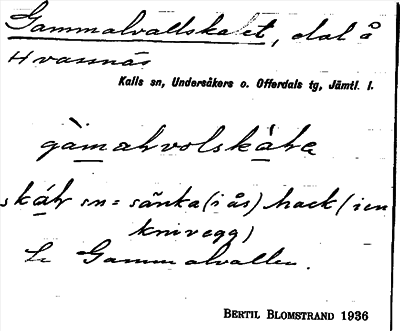 Gammalvallskalet, dal å
Hvassnäs
Kalls sn, Undersåkers o. Offerdals tg, Jämtl. l.
gàmaɫvolskàɫɐ
skáɫ sn = sänka (i ås) hack (i en
knivegg)
Se Gammalvallen.
BERTIL BLOMSTRAND 1936